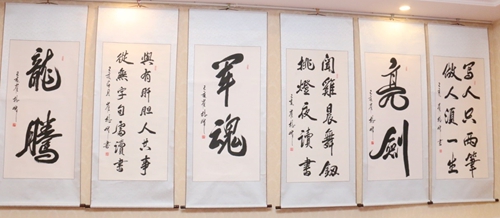 龍騰
與有肝胆人共事
從無字句處讀書
軍魂
聞雞晨舞劔
挑燈夜讀書
亮劍
寫人只兩筆
做人須一生